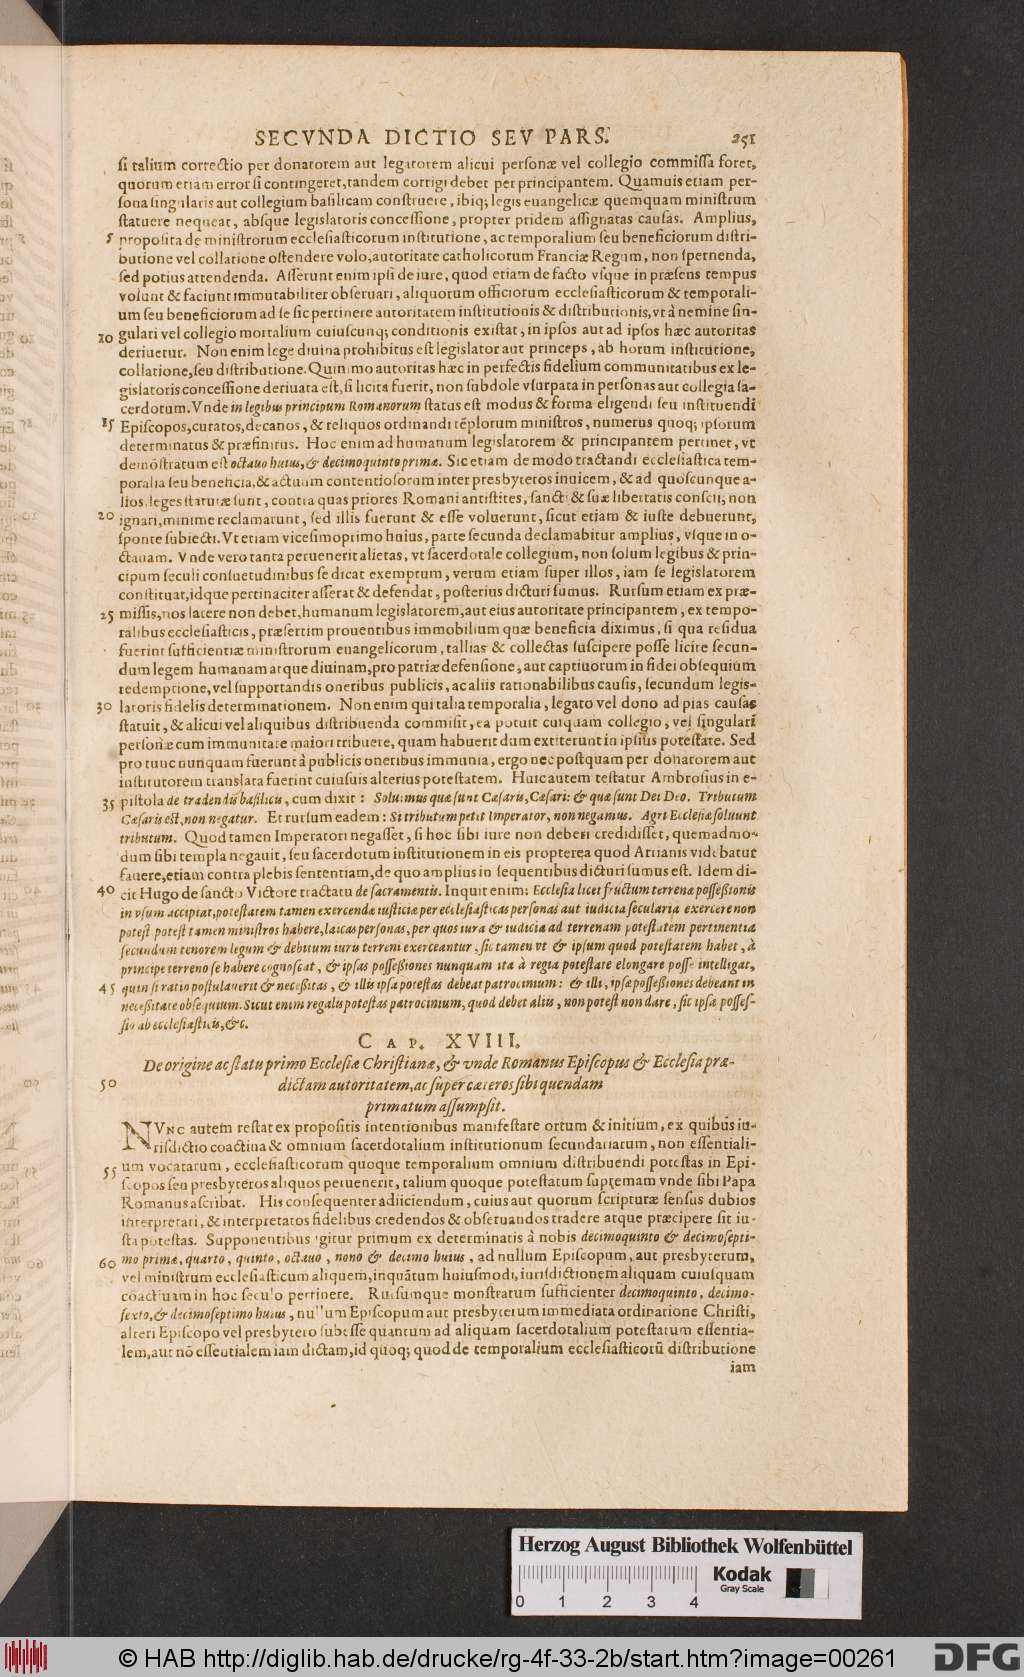 SECVNDA DICTIO SEV PARS. 251
ſi talium correctio per donatorem aut legatorem alicui perſonæ vel collegio commiſſa foret,
quorum etiam error ſi contingeret, tandem corrigi debet per principantem. Quamuis etiam per-
ſona ſingularis aut collegium baſilicam conſtruere, ibiq; legis euangelicæ quemquam miniſtrum
ſtatuere nequeat, abſque legislatoris conceſſione, propter pridem aſſignatas cauſas. Amplius,
5 propoſita de miniſtrorum eccleſiaſticorum inſtitutione, ac temporalium ſeu beneficiorum diſtri-
butione vel collatione oſtendere volo, autoritate catholicorum Franciæ Regum, non ſpernenda,
ſed potius attendenda. Aſſerunt enim ipſi de iure, quod etiam de facto vſque in præſens tempus
volunt & faciunt immutabiliter obſeruari, aliquorum officiorum eccleſiaſticorum & temporali-
um ſeu beneficiorum ad ſe ſic pertinere autoritatem inſtitutionis & diſtributionis, vt à nemine ſin-
10 gulari vel collegio mortalium cuiuſcunq; conditionis exiſtat, in ipſos aut ad ipſos hæc autoritas
deriuetur. Non enim lege diuina prohibitus eſt legislator aut princeps, ab horum inſtitutione,
collatione, ſeu diſtributione. Quinimo autoritas hæc in perfectis fidelium communitatibus ex le-
gislatoris conceſſione deriuata eſt, ſi licita fuerit, non ſubdole vſurpata in perſonas aut collegia ſa-
cerdotum. Vnde in legibus principum Romanorum ſtatus eſt modus & forma eligendi ſeu inſtituendi
15 Epiſcopos, curatos, decanos, & reliquos ordinandi tẽplorum miniſtros, numerus quoq; ipſorum
determinatus & præfinitus. Hoc enim ad humanum legislatorem & principantem pertinet, vt
demõſtratum eſt octauo huius, & decimoquinto primæ. Sic etiam de modo tractandi eccleſiaſtica tem-
poralia ſeu beneficia, & actuum contentioſorum inter presbyteros inuicem, & ad quoſcunque a-
lios, leges ſtatutæ ſunt, contra quas priores Romani antiſtites, ſancti & ſuæ libertatis conſcij, non
20 ignari, minime reclamarunt, ſed illis fuerunt & eſſe voluerunt, ſicut etiam & iuſte debuerunt,
ſponte ſubiecti. Vt etiam viceſimoprimo huius, parte ſecunda declamabitur amplius, vſque in o-
ctauam. Vnde vero tanta peruenerit alietas, vt ſacerdotale collegium, non ſolum legibus & prin-
cipum ſeculi conſuetudinibus ſe dicat exemptum, verum etiam ſuper illos, iam ſe legislatorem
conſtituat, idque pertinaciter aſſerat & defendat, poſterius dicturi ſumus. Rurſum etiam ex præ-
25 miſſis, nos latere non debet, humanum legislatorem, aut eius autoritate principantem, ex tempo-
ralibus eccleſiaſticis, præſertim prouentibus immobilium quæ beneficia diximus, ſi qua reſidua
fuerint ſufficientiæ miniſtrorum euangelicorum, tallias & collectas ſuſcipere poſſe licite ſecun-
dum legem humanam atque diuinam, pro patriæ defenſione, aut captiuorum in fidei obſequium
redemptione, vel ſupportandis oneribus publicis, ac aliis rationabilibus cauſis, ſecundum legis-
30 latoris fidelis determinationem. Non enim qui talia temporalia, legato vel dono ad pias cauſas
ſtatuit, & alicui vel aliquibus diſtribuenda commiſit, ea potuit cuiquam collegio, vel ſingulari
perſonæ cum immunitate maiori tribuere, quam habuerit dum extiterunt in ipſius poteſtate. Sed
pro tunc nunquam fuerunt à publicis oneribus immunia, ergo nec poſtquam per donatorem aut
inſtitutorem translata fuerint cuiuſuis alterius poteſtatem. Huic autem teſtatur Ambroſius in e-
35 piſtola de tradendis baſilicis, cum dixit: Soluimus quæ ſunt Cæſaris, Cæſari: & quæ ſunt Dei Deo. Tributum
Cæſaris eſt, non negatur. Et rurſum eadem: Si tributum petit Imperator, non negamus. Agri Eccleſiæ ſoluunt
tributum. Quod tamen Imperatori negaſſet, ſi hoc ſibi iure non deberi credidiſſet, quemadmo-
dum ſibi templa negauit, ſeu ſacerdotum inſtitutionem in eis propterea quod Arrianis videbatur
fauere, etiam contra plebis ſententiam, de quo amplius in ſequentibus dicturi ſumus eſt. Idem di-
40 cit Hugo de ſancto Victore tractatu de ſacramentis. Inquit enim: Eccleſia licet fructum terrenæ poſſeßionis
in vſum accipiat, poteſtatem tamen exercendæ iuſticiæ per eccleſiaſticas perſonas aut iudicia ſecularia exercere non
poteſt poteſt tamen miniſtros habere, laicas perſonas, per quos iura & iudicia ad terrenam poteſtatem pertinentia
ſecundum tenorem legum & debitum iuris terreni exerceantur, ſic tamen vt & ipſum quod poteſtatem habet, à
principe terreno ſe habere cognoſcat, & ipſas poſſeßiones nunquam ita à regia poteſtate elongare poſſe intelligat,
45 quin ſi ratio poſtulauerit & neceßitas, & illis ipſa poteſtas debeat patrocinium: & illi, ipſæ poſſeßiones debeant in
neceßitate obſequium. Sicut enim regalis poteſtas patrocinium, quod debet aliis, non poteſt non dare, ſic ipſæ poſſeſ-
ſio ab eccleſiaſticis, &c.
CAP. XVIII.
De origine ac ſtatu primo Eccleſiæ Chriſtianæ, & vnde Romanus Epiſcopus & Eccleſia præ-
50 dictam autoritatem, ac ſuper cæteros ſibi quendam
primatum aſſumpſit.
NVNC autem reſtat ex propoſitis intentionibus manifeſtare ortum & initium, ex quibus iu-
riſdictio coactiua & omnium ſacerdotalium inſtitutionum ſecundariarum, non eſſentiali-
55 um vocatarum, eccleſiaſticorum quoque temporalium omnium diſtribuendi poteſtas in Epi-
ſcopos ſeu presbyteros aliquos peruenerit, talium quoque poteſtatum ſupremam vnde ſibi Papa
Romanus aſcribat. His conſequenter adiiciendum, cuius aut quorum ſcripturæ ſenſus dubios
interpretari, & interpretatos fidelibus credendos & obſeruandos tradere atque præcipere ſit iu-
ſta poteſtas. Supponentibus igitur primum ex determinatis à nobis decimoquinto & decimoſepti-
60 mo primæ, quarto, quinto, octauo, nono & decimo huius, ad nullum Epiſcopum, aut presbyterum,
vel miniſtrum eccleſiaſticum aliquem, inquãtum huiuſmodi, iuriſdictionem aliquam cuiuſquam
coactiuam in hoc ſeculo pertinere. Rurſumque monſtratum ſufficienter decimoquinto, decimo-
ſexto, & decimoſeptimo huius, nullum Epiſcopum aut presbyterum immediata ordinatione Chriſti,
alteri Epiſcopo vel presbytero ſubeſſe quantum ad aliquam ſacerdotalium poteſtatum eſſentia-
lem, aut nõ eſſentialem iam dictam, id quoq; quod de temporalium eccleſiaſticorũ diſtributione
iam
Herzog August Bibliothek Wolfenbüttel
Kodak
Gray Scale
0 1 2 3 4
© HAB http://diglib.hab.de/drucke/rg-4f-33-2b/start.htm?image=00261
DFG